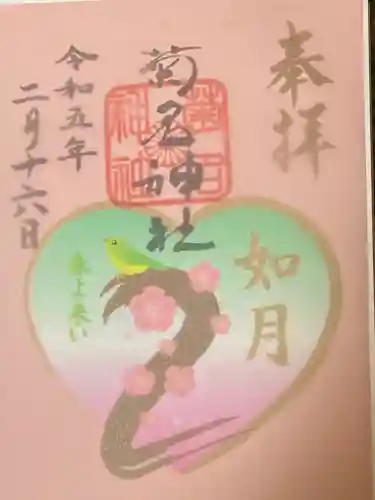 奉拝
菊名神社
令和五年
二月十六日
如月
2